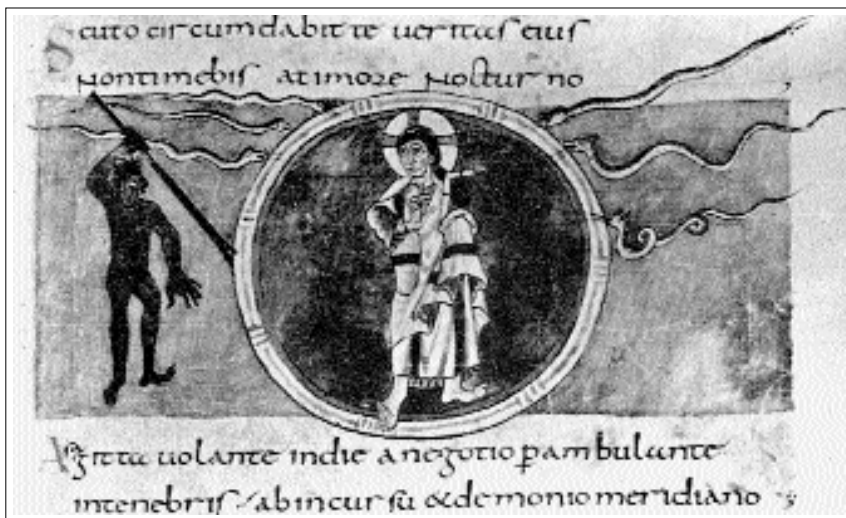 Scuto circumdabit te ueritas eius
Nontimebis atimore Nocturno
Asagitta uolante indie anegotio p̱ambulante
intenebris / abincursu &demonio meridiano